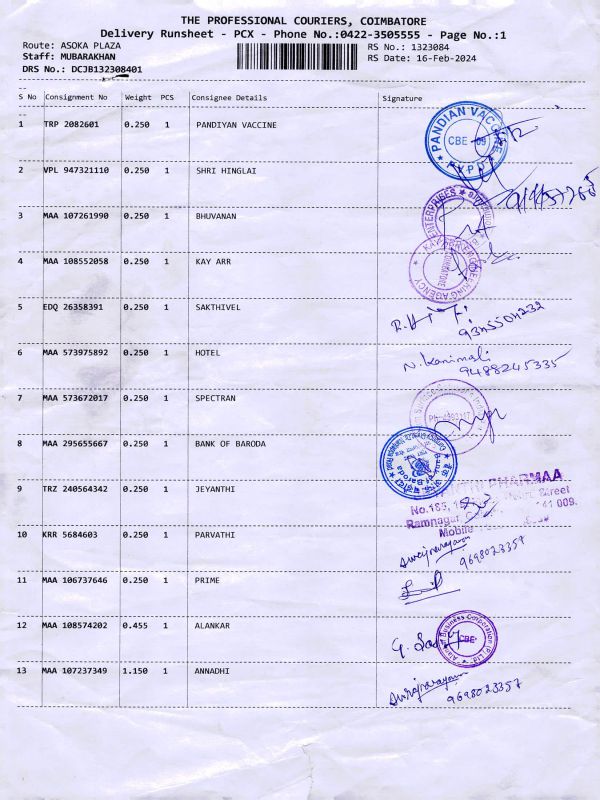 THE PROFESSIONAL COURIERS, COIMBATORE
Delivery Runsheet - PCX - Phone No.:0422-3505555 - Page No.:1
Route: ASOKA PLAZA
Staff: MUBARAKHAN
DRS No.: DCJB132308401
RS No.: 1323084
RS Date: 16-Feb-2024
S No Consignment No Weight PCS Consignee Details Signature
1 TRP 2082601 0.250 1 PANDIYAN VACCINE
PANDIAN VACCINE
CBE - 09
2 VPL 947321110 0.250 1 SHRI HINGLAI
3 MAA 107261990 0.250 1 BHUVANAN
ENTERPRISES
4 MAA 108552058 0.250 1 KAY ARR
COIMBATORE
AGENCY
5 EDQ 26358391 0.250 1 SAKTHIVEL
6 MAA 573975892 0.250 1 HOTEL
N. Kanimali
9488245335
7 MAA 573672017 0.250 1 SPECTRAN
8 MAA 295655667 0.250 1 BANK OF BARODA
Bank of Baroda
9 TRZ 240564342 0.250 1 JEYANTHI
PHARMAA
Street
Ramnagar 641 009.
Mobile
10 KRR 5684603 0.250 1 PARVATHI
9698023357
11 MAA 106737646 0.250 1 PRIME
12 MAA 108574202 0.455 1 ALANKAR
Business Corporation (P) Ltd
CBE
13 MAA 107237349 1.150 1 ANNADHI
9698023357